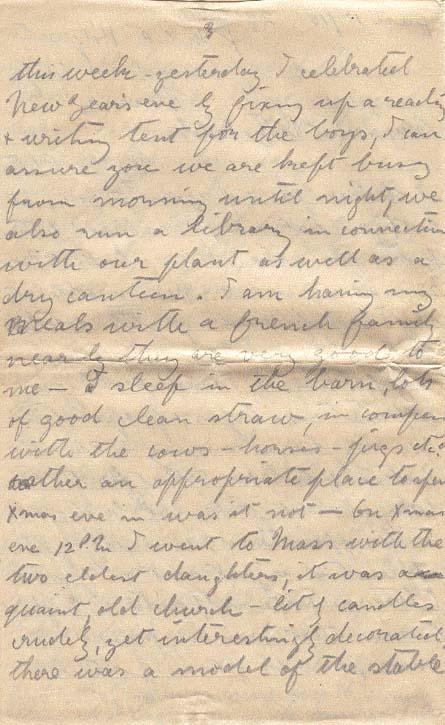 3
this week - yesterday I celebrated
New Year's eve by fixing up a reading
& writing tent for the boys, I can
assure you we are kept busy
from morning until night, we
also run a library in connection
with our plant as well as a
dry canteen. I am having my
meals with a french family
near by they are very good to
me - I sleep in the barn, lots
of good clean straw, in company
with the cows - horses - pigs etc.
rather an appropriate place to spend
Xmas eve in was it not - On Xmas
eve 12 P.M I went to Mass with the
two eldest daughters, it was a
quaint, old church - lit by candles
crudely, yet interestingly decorated
there was a model of the stable